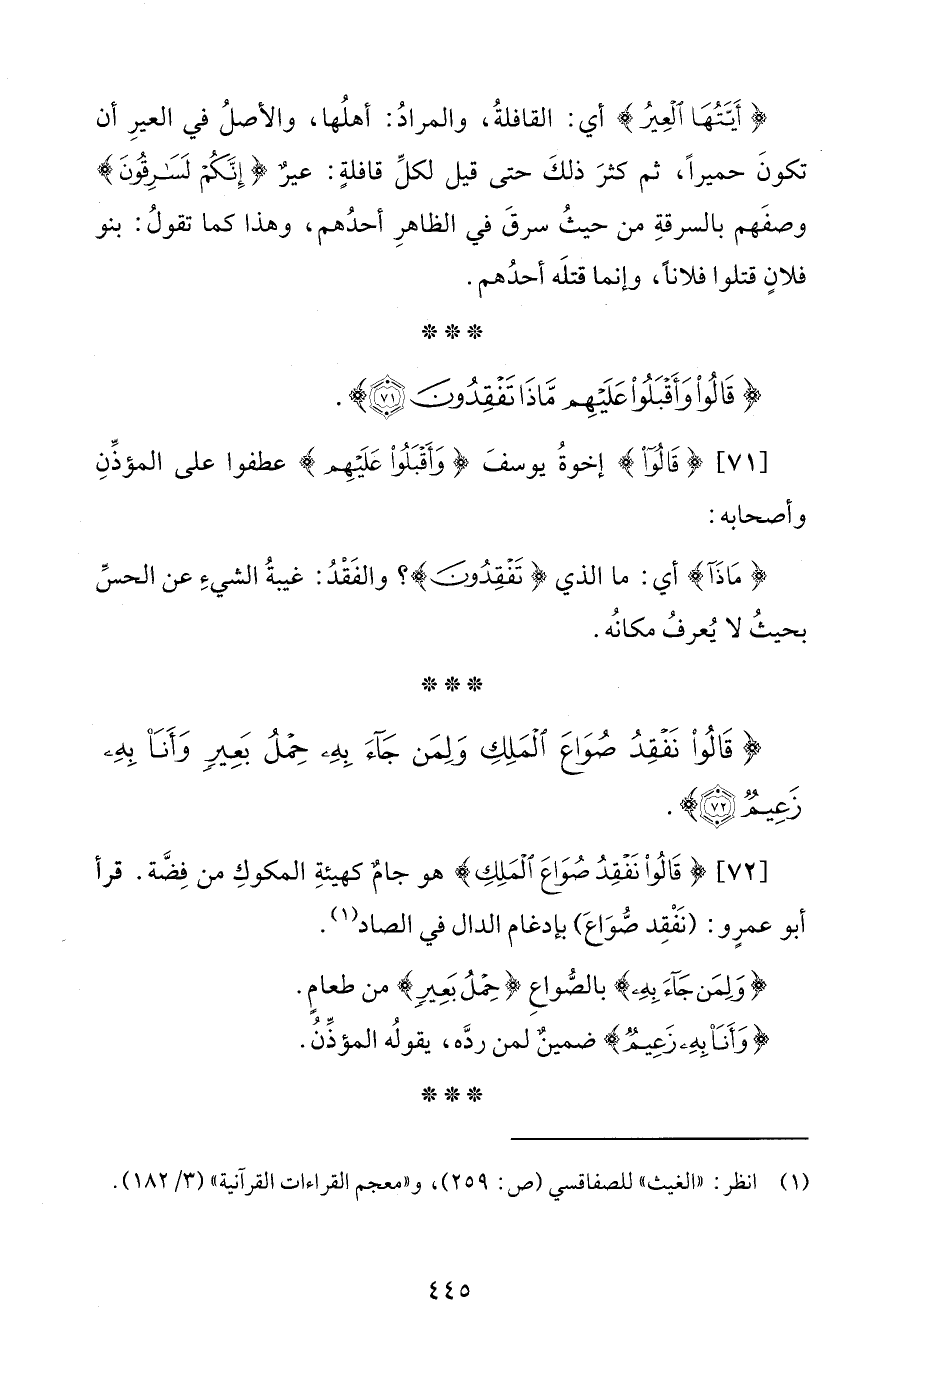 ﴿أَيَّتُهَا ٱلْعِيرُ﴾ أي: القافلةُ، والمرادُ: أهلُها، والأصلُ في العيرِ أن
تكونَ حميراً، ثم كثرَ ذلكَ حتى قيل لكلِّ قافلةٍ: عيرٌ ﴿إِنَّكُمْ لَسَٰرِقُونَ﴾
وصفَهم بالسرقةِ من حيثُ سرقَ في الظاهرِ أحدُهم، وهذا كما تقولُ: بنو
فلانٍ قتلوا فلاناً، وإنما قتلَه أحدُهم.
***
﴿قَالُوا۟ وَأَقْبَلُوا۟ عَلَيْهِم مَّاذَا تَفْقِدُونَ ٧١﴾.
[٧١] ﴿قَالُوٓا۟﴾ إخوةُ يوسفَ ﴿وَأَقْبَلُوا۟ عَلَيْهِم﴾ عطفوا على المؤذِّنِ
وأصحابه:
﴿مَاذَآ﴾ أي: ما الذي ﴿تَفْقِدُونَ﴾؟ والفَقْدُ: غيبةُ الشيءِ عن الحسِّ
بحيثُ لا يُعرفُ مكانُه.
***
﴿قَالُوا۟ نَفْقِدُ صُوَاعَ ٱلْمَلِكِ وَلِمَن جَآءَ بِهِۦ حِمْلُ بَعِيرٍ وَأَنَا۠ بِهِۦ
زَعِيمٌ ٧٢﴾.
[٧٢] ﴿قَالُوا۟ نَفْقِدُ صُوَاعَ ٱلْمَلِكِ﴾ هو جامٌ كهيئةِ المكوكِ من فِضَّة. قرأ
أبو عمرٍو: (نَفْقِد صُّوَاعَ) بإدغام الدال في الصاد(١).
﴿وَلِمَن جَآءَ بِهِۦ﴾ بالصُّواعِ ﴿حِمْلُ بَعِيرٍ﴾ من طعامٍ.
﴿وَأَنَا۠ بِهِۦ زَعِيمٌ﴾ ضمينٌ لمن ردَّه، يقولُه المؤذِّنُ.
***
(١) انظر: «الغيث» للصفاقسي (ص: ٢٥٩)، و«معجم القراءات القرآنية» (٣/ ١٨٢).
٤٤٥